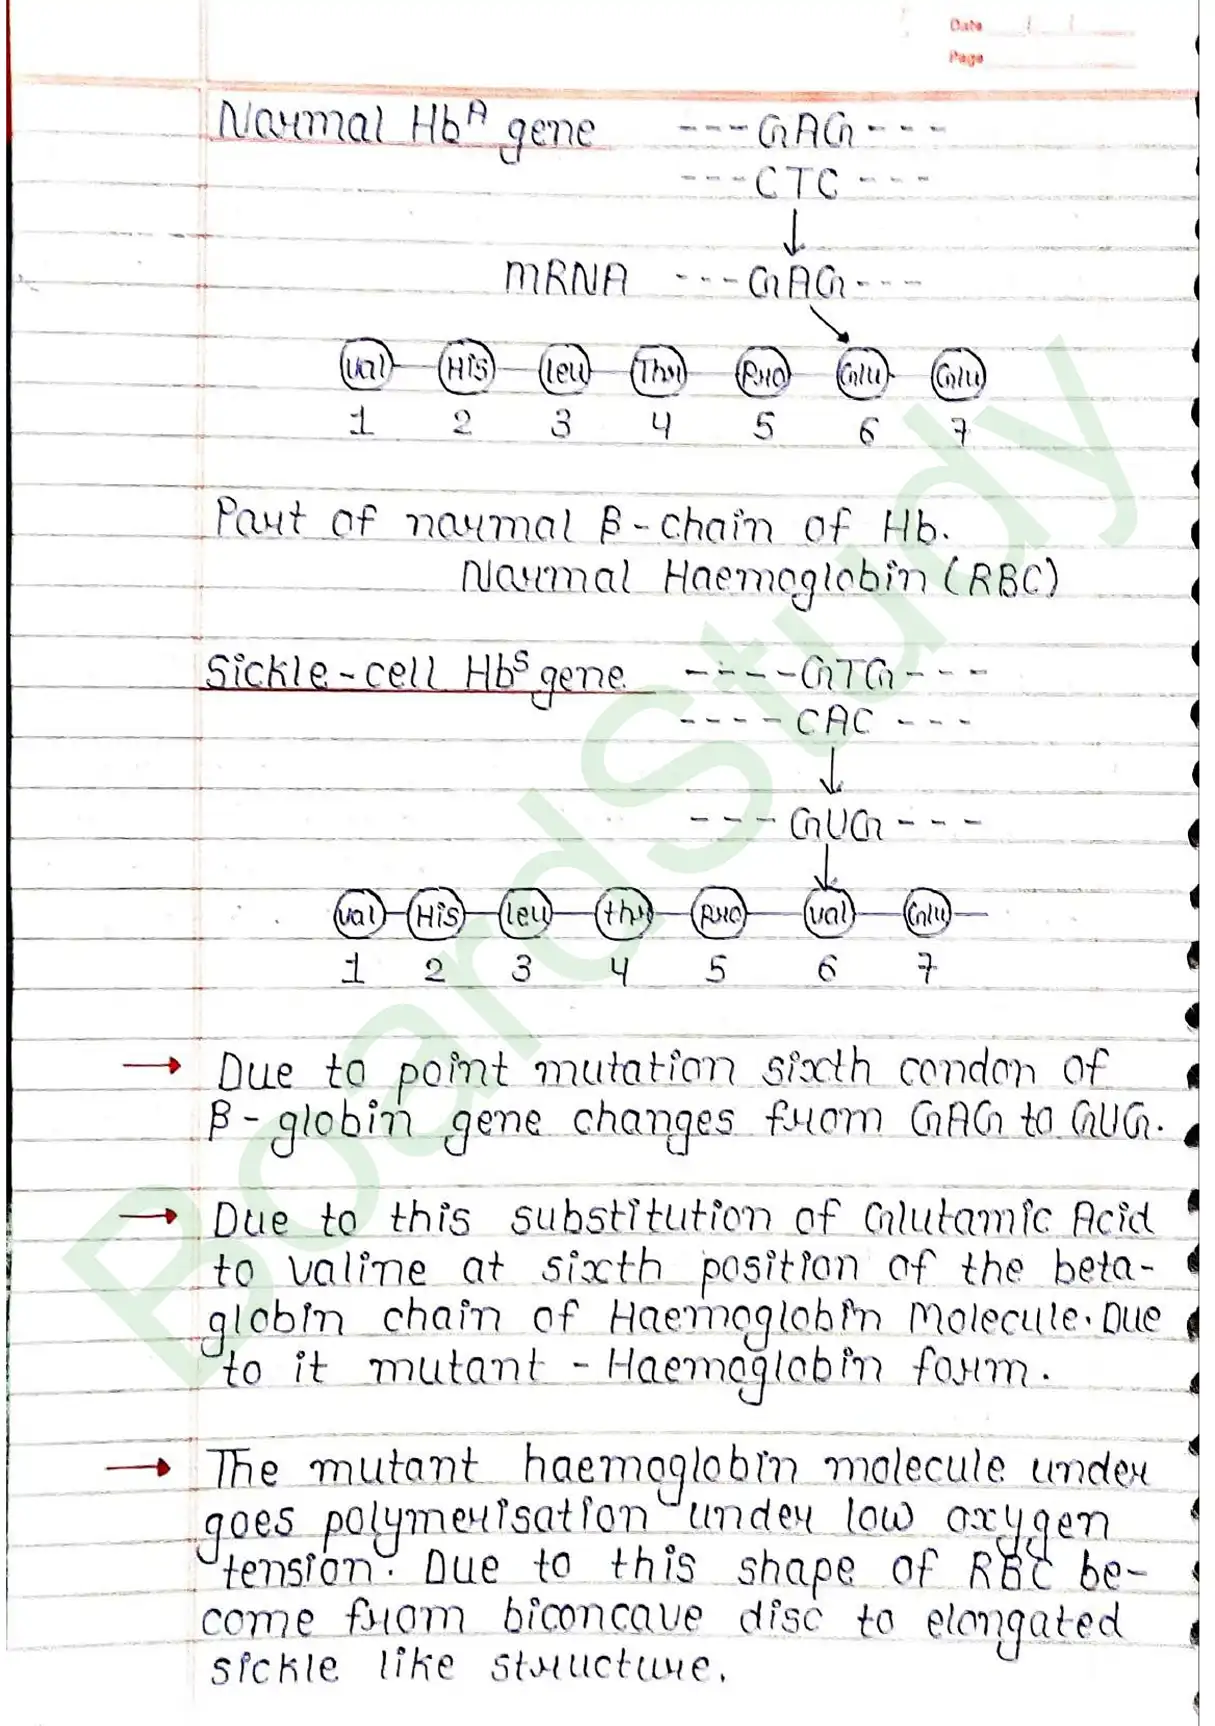 Date / /
Page
Normal Hb^A gene ---GAG---
---CTC---
mRNA ---GAG---
Val His Leu Thr Pro Glu Glu
1 2 3 4 5 6 7
Part of normal β-chain of Hb.
Normal Haemoglobin (RBC)
Sickle-cell Hb^S gene ----GTG---
----CAC---
---GUG---
Val His Leu thr Pro Val Glu
1 2 3 4 5 6 7
→ Due to point mutation sixth condon of
β-globin gene changes from GAG to GUG.
→ Due to this substitution of Glutamic Acid
to valine at sixth position of the beta-
globin chain of Haemoglobin Molecule. Due
to it mutant - Haemoglobin form.
→ The mutant haemoglobin molecule under
goes polymerisation under low oxygen
tension. Due to this shape of RBC be-
come from biconcave disc to elongated
sickle like structure.
BoardStudy